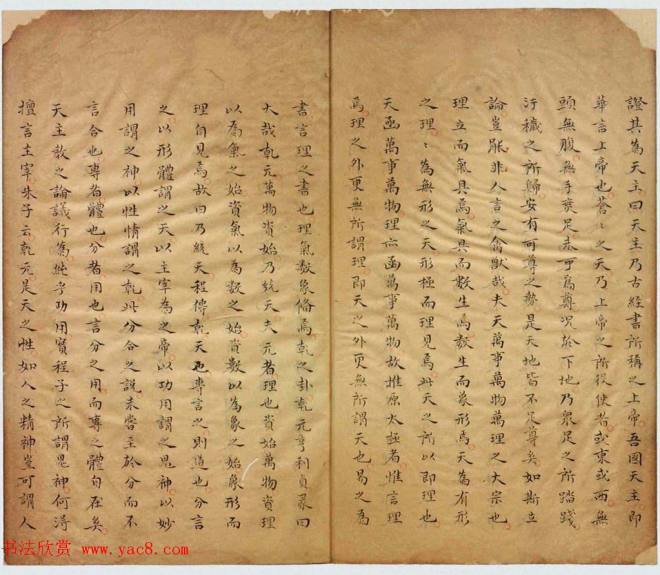 證其為天主曰天主乃古經書所稱之上帝吾國天主即
華言上帝也蒼〻之天乃上帝之所役使者或東或西無
頭無腹無手無足未可為尊況於下地乃衆足之所踏踐
汙穢之所歸安有可尊之勢是天地皆不足尊矣如斯立
論豈非人言之禽獸哉夫天萬事萬物萬理之大宗也
理立而氣具焉氣具而數生焉數生而象形焉天為有形
之理〻為無形之天形極而理見焉此天之所以即理也
天函萬事萬物理亦函萬事萬物故推原太極者惟言理
焉理之外更無所謂理即天之外更無所謂天也易之為
書言理之書也理氣數象備焉乾之卦乾元亨利貞彖曰
大哉乾元萬物資始乃統天夫元者理也資始萬物資理
以為氣之始資氣以為數之始資數以為象之始象形而
理自見焉故曰乃統天程傳乾天也專言之則道也分言
之以形體謂之天以主宰為之帝以功用謂之鬼神以妙
用謂之神以性情謂之乾此分合之說未嘗至於分而不
言合也專者體也分者用也言分之用而專之體自在矣
天主教之論議行為純乎功用實程子之所謂鬼神何得
擅言主宰朱子云乾元是天之性如人之精神豈可謂人
书法欣赏 www.yac8.com